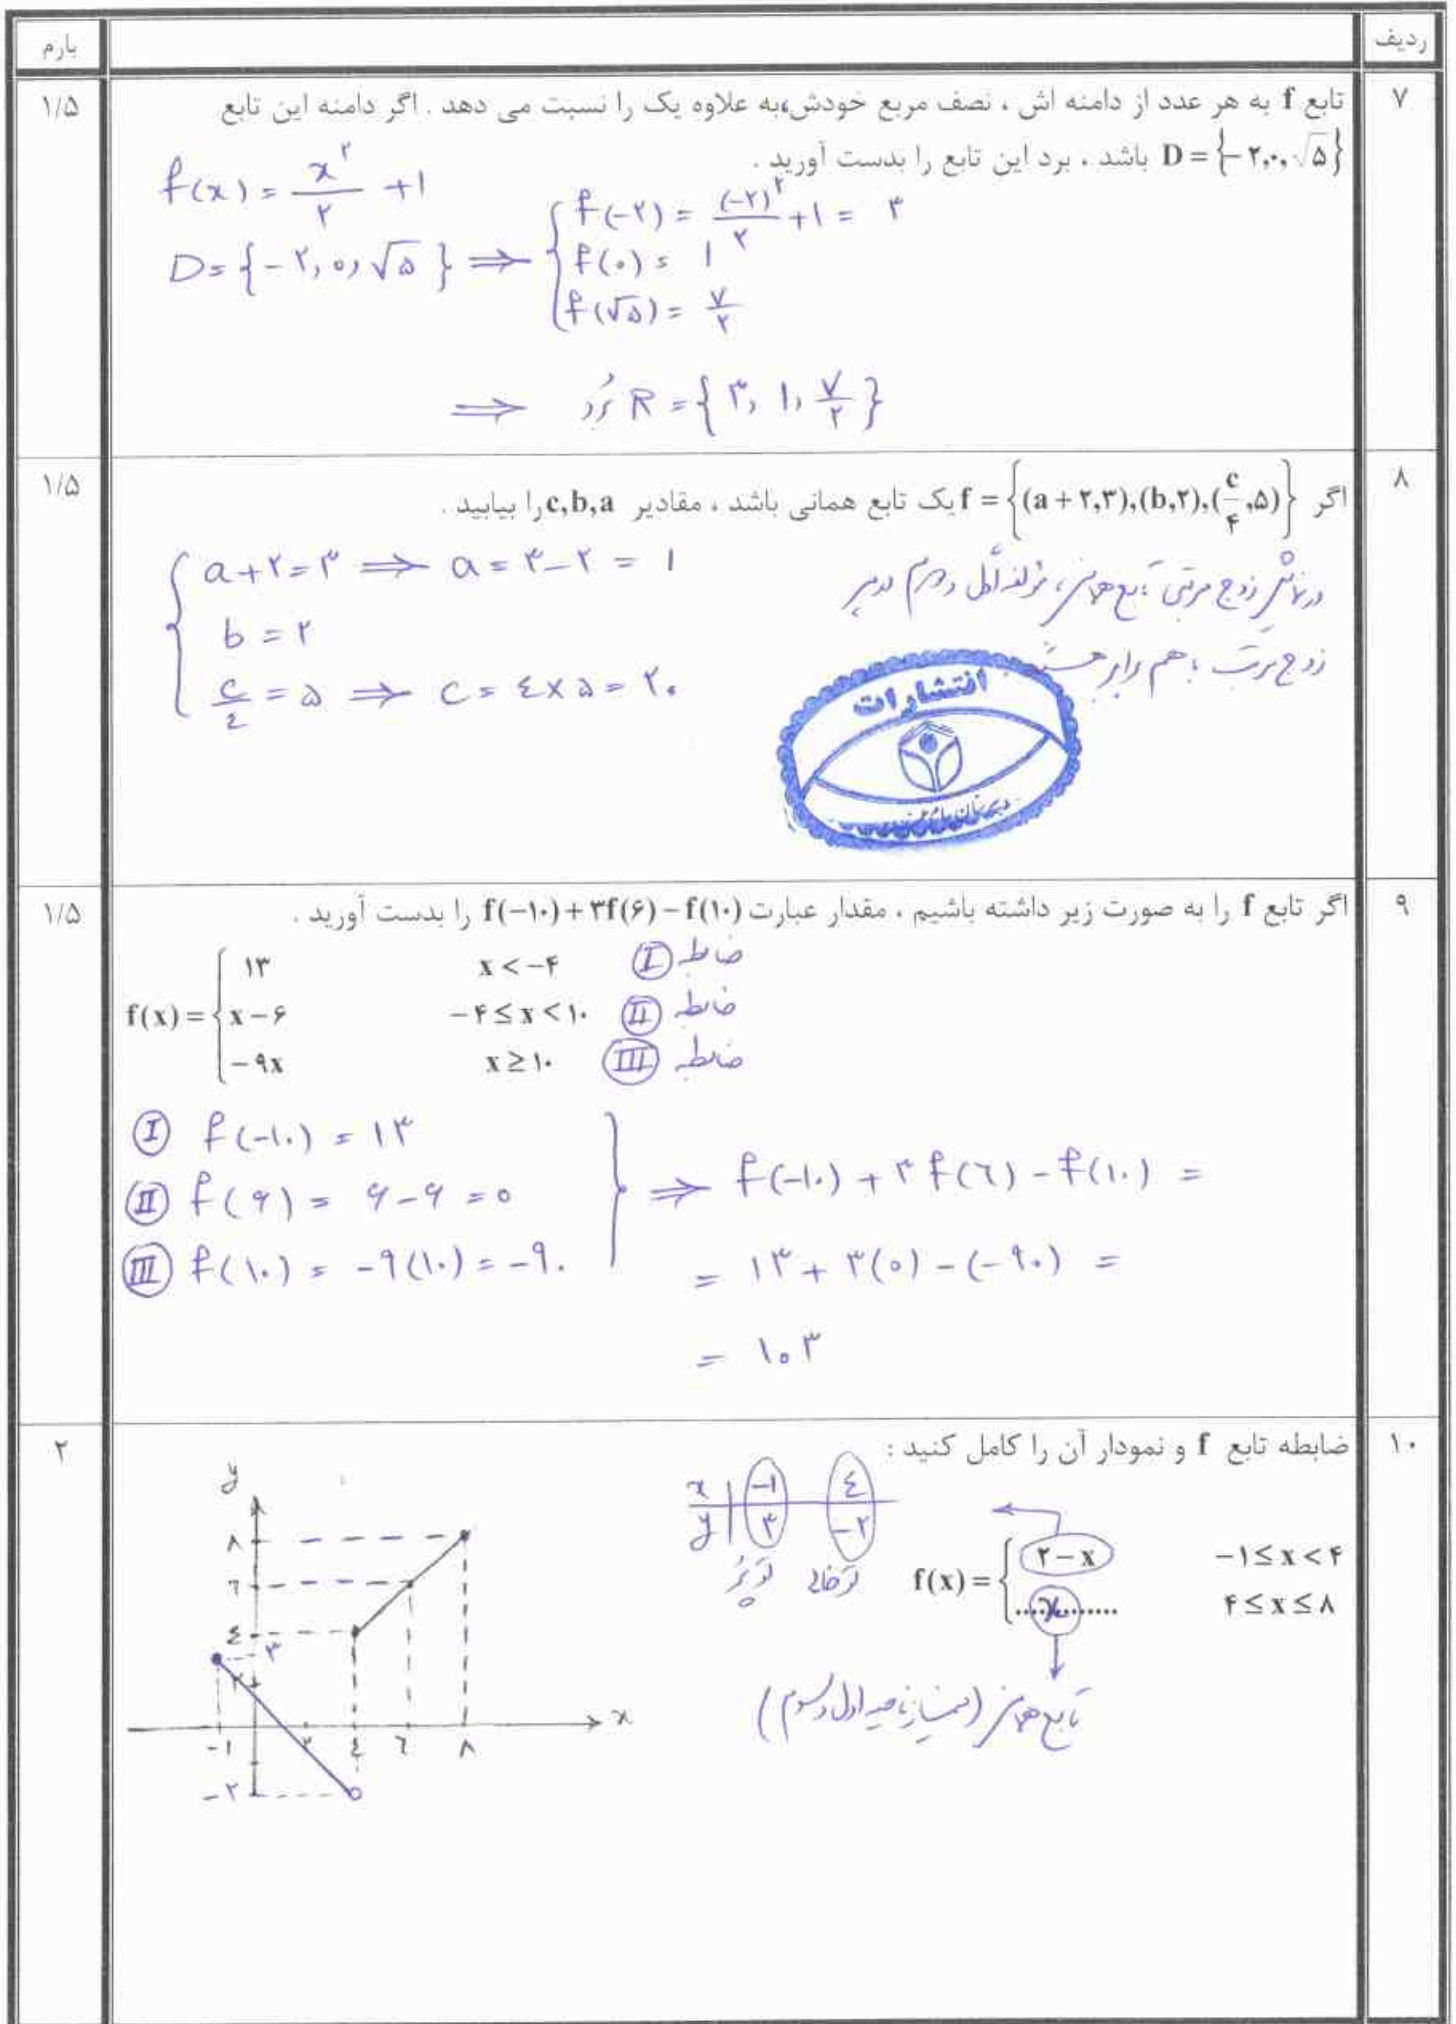 ردیف
بارم
۷
تابع f به هر عدد از دامنه اش ، نصف مربع خودش،به علاوه یک را نسبت می دهد . اگر دامنه این تابع
۱/۵
D = {-۲,۰,√۵} باشد ، برد این تابع را بدست آورید .
f(x) = x^۲/۲ + ۱
D = {-۲, ۰, √۵} ⇒ { f(-۲) = (-۲)^۲/۲ + ۱ = ۳
f(۰) = ۱
f(√۵) = ۷/۲
⇒ بُرد R = {۳, ۱, ۷/۲}
۸
اگر f = {(a + ۲,۳),(b,۲),(c/۴,۵)} یک تابع همانی باشد ، مقادیر c,b,a را بیابید .
۱/۵
a + ۲ = ۳ ⇒ a = ۳ - ۲ = ۱
b = ۲
c/٤ = ۵ ⇒ c = ٤ × ۵ = ۲۰
در نمایش زوج مرتبی تابع همانی، مؤلفه اول و دوم هر
زوج مرتب باهم برابر هستند
انتشارات
۹
اگر تابع f را به صورت زیر داشته باشیم ، مقدار عبارت f(-۱۰) + ۳f(۶) - f(۱۰) را بدست آورید .
۱/۵
f(x) = { ۱۳ x < -۴ ضابطه I
x - ۶ -۴ ≤ x < ۱۰ ضابطه II
-۹x x ≥ ۱۰ ضابطه III
I f(-۱۰) = ۱۳
II f(۶) = ۶ - ۶ = ۰
III f(۱۰) = -۹(۱۰) = -۹۰
⇒ f(-۱۰) + ۳ f(٦) - f(۱۰) =
= ۱۳ + ۳(۰) - (-۹۰) =
= ۱۰۳
۱۰
ضابطه تابع f و نمودار آن را کامل کنید :
۲
x | -۱ ٤
y | ۳ -۲
توپُر توخالی
f(x) = { ۲ - x -۱ ≤ x < ۴
...x... ۴ ≤ x ≤ ۸
تابع همانی (نیمساز ناحیه اول و سوم)
y
۸
٦
٤
۳
۲
-۱ ۲ ٤ ٦ ۸ x
-۲